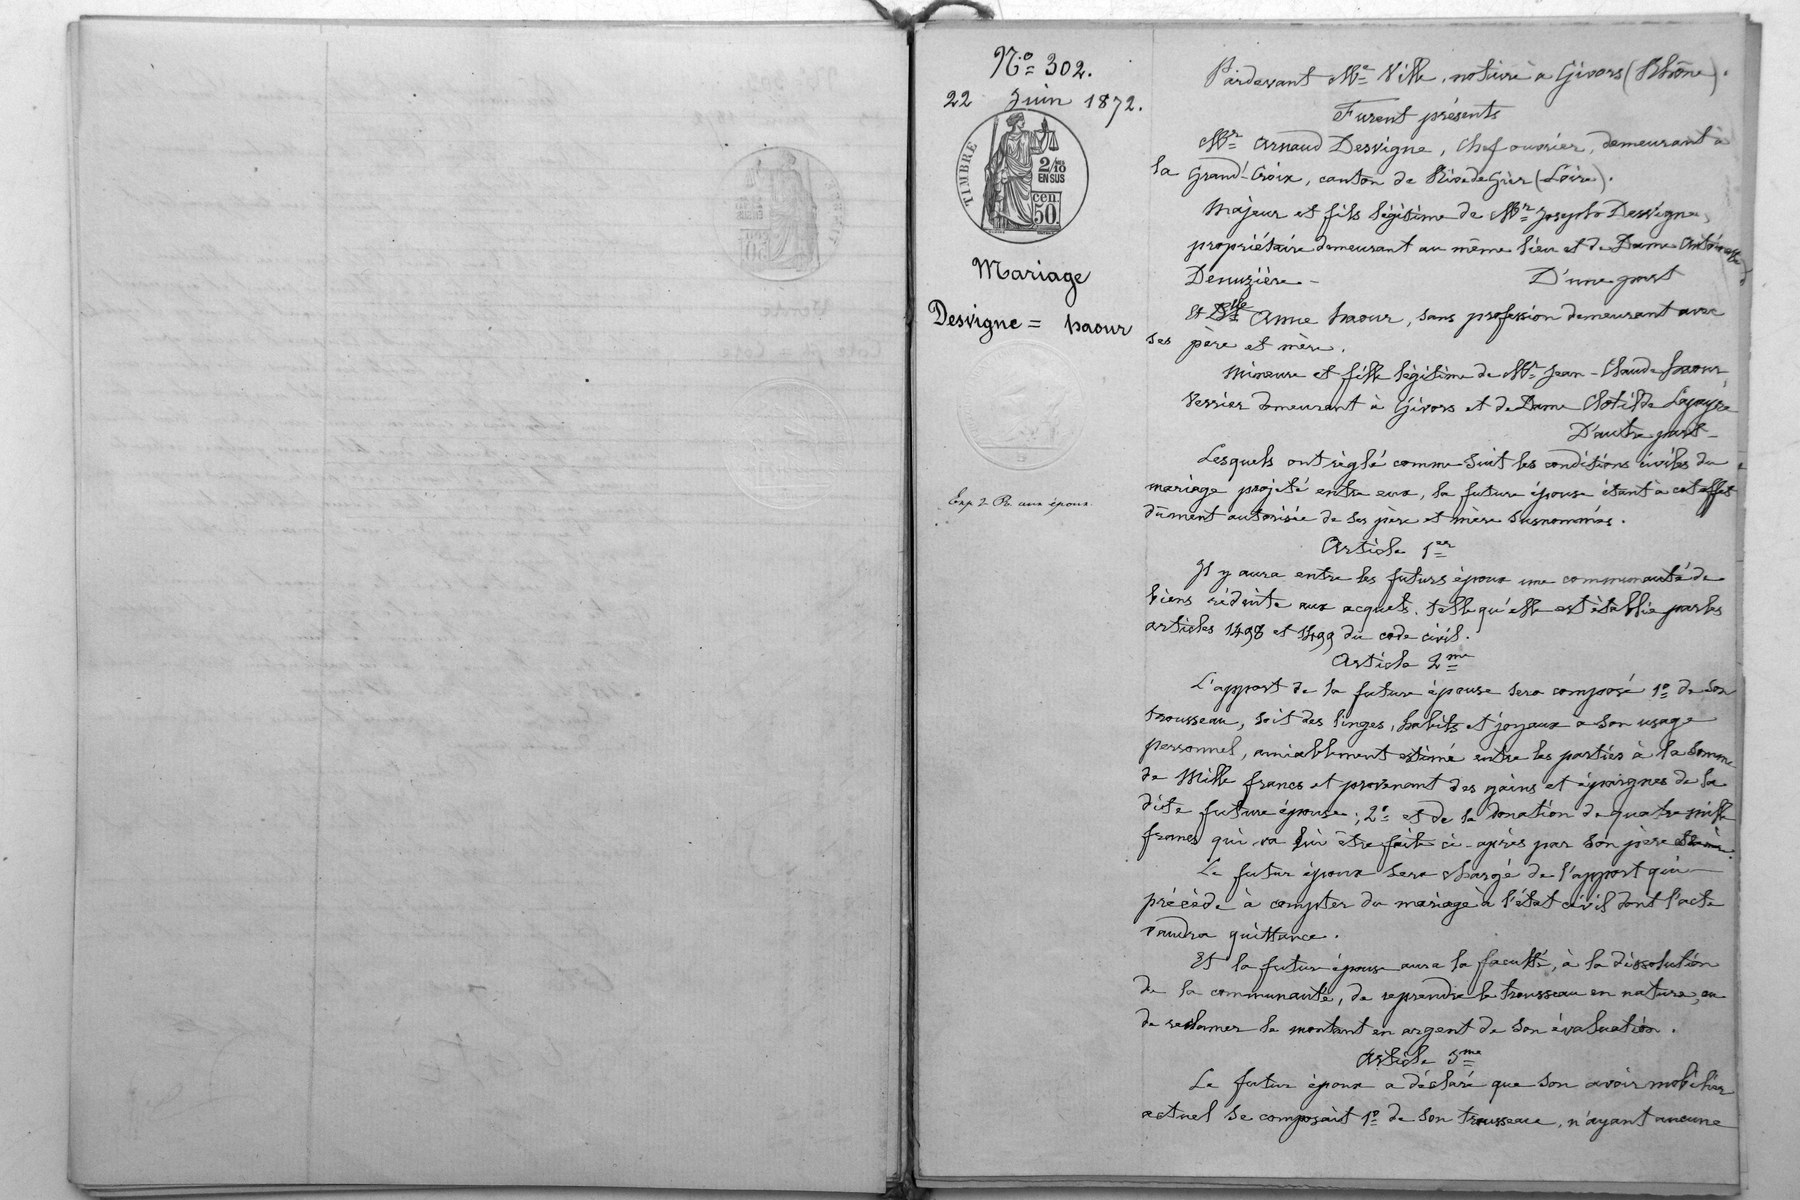 No 302.
22 Juin 1872.
TIMBRE
2/10
EN SUS
cen.
50.
Mariage
Desvigne = haour
Exp 2 R aux époux.
Pardevant Me Ville, notaire à Givors (Rhône).
Furent présents
Mr Arnaud Desvigne, Chef ouvrier, demeurant à
la Grand'-Croix, canton de Rive de Gier (Loire).
Majeur et fils légitime de Mr Joseph Desvigne,
propriétaire demeurant au même lieu et de Dame Antoinette
Denuzière - D'une part
Et Dlle Anne haour, sans profession demeurant avec
ses père et mère.
Mineure et fille légitime de Mr Jean-Claude haour,
Verrier demeurant à Givors et de Dame Clotilde
D'autre part -
Lesquels ont règlé comme suit les conditions civiles du
mariage projeté entre eux, la future épouse étant à cet effet
dûment autorisée de ses père et mère susnommés.
Article 1er
Il y aura entre les futurs époux une communauté de
biens réduite aux acquets, telle qu'elle est établie par les
articles 1498 et 1499 du code civil.
Article 2me
L'apport de la future épouse sera composé 1o de son
trousseau, soit des linges, habits et joyaux à son usage
personnel, amiablement estimé entre les parties à la somme
de Mille francs et provenant des gains et épargnes de la
dite future épouse; 2o et de la donation de quatre mille
francs qui va lui être faite ci-après par son père
Le futur époux sera chargé de l'apport qui
précède à compter du mariage à l'état civil dont l'acte
vaudra quittance.
Et la future épouse aura la faculté, à la dissolution
de la communauté, de reprendre le trousseau en nature, ou
de reclamer le montant en argent de son évaluation.
Article 3me
Le futur époux a déclaré que son avoir mobilier
actuel se composait 1o de son trousseau, n'ayant aucune